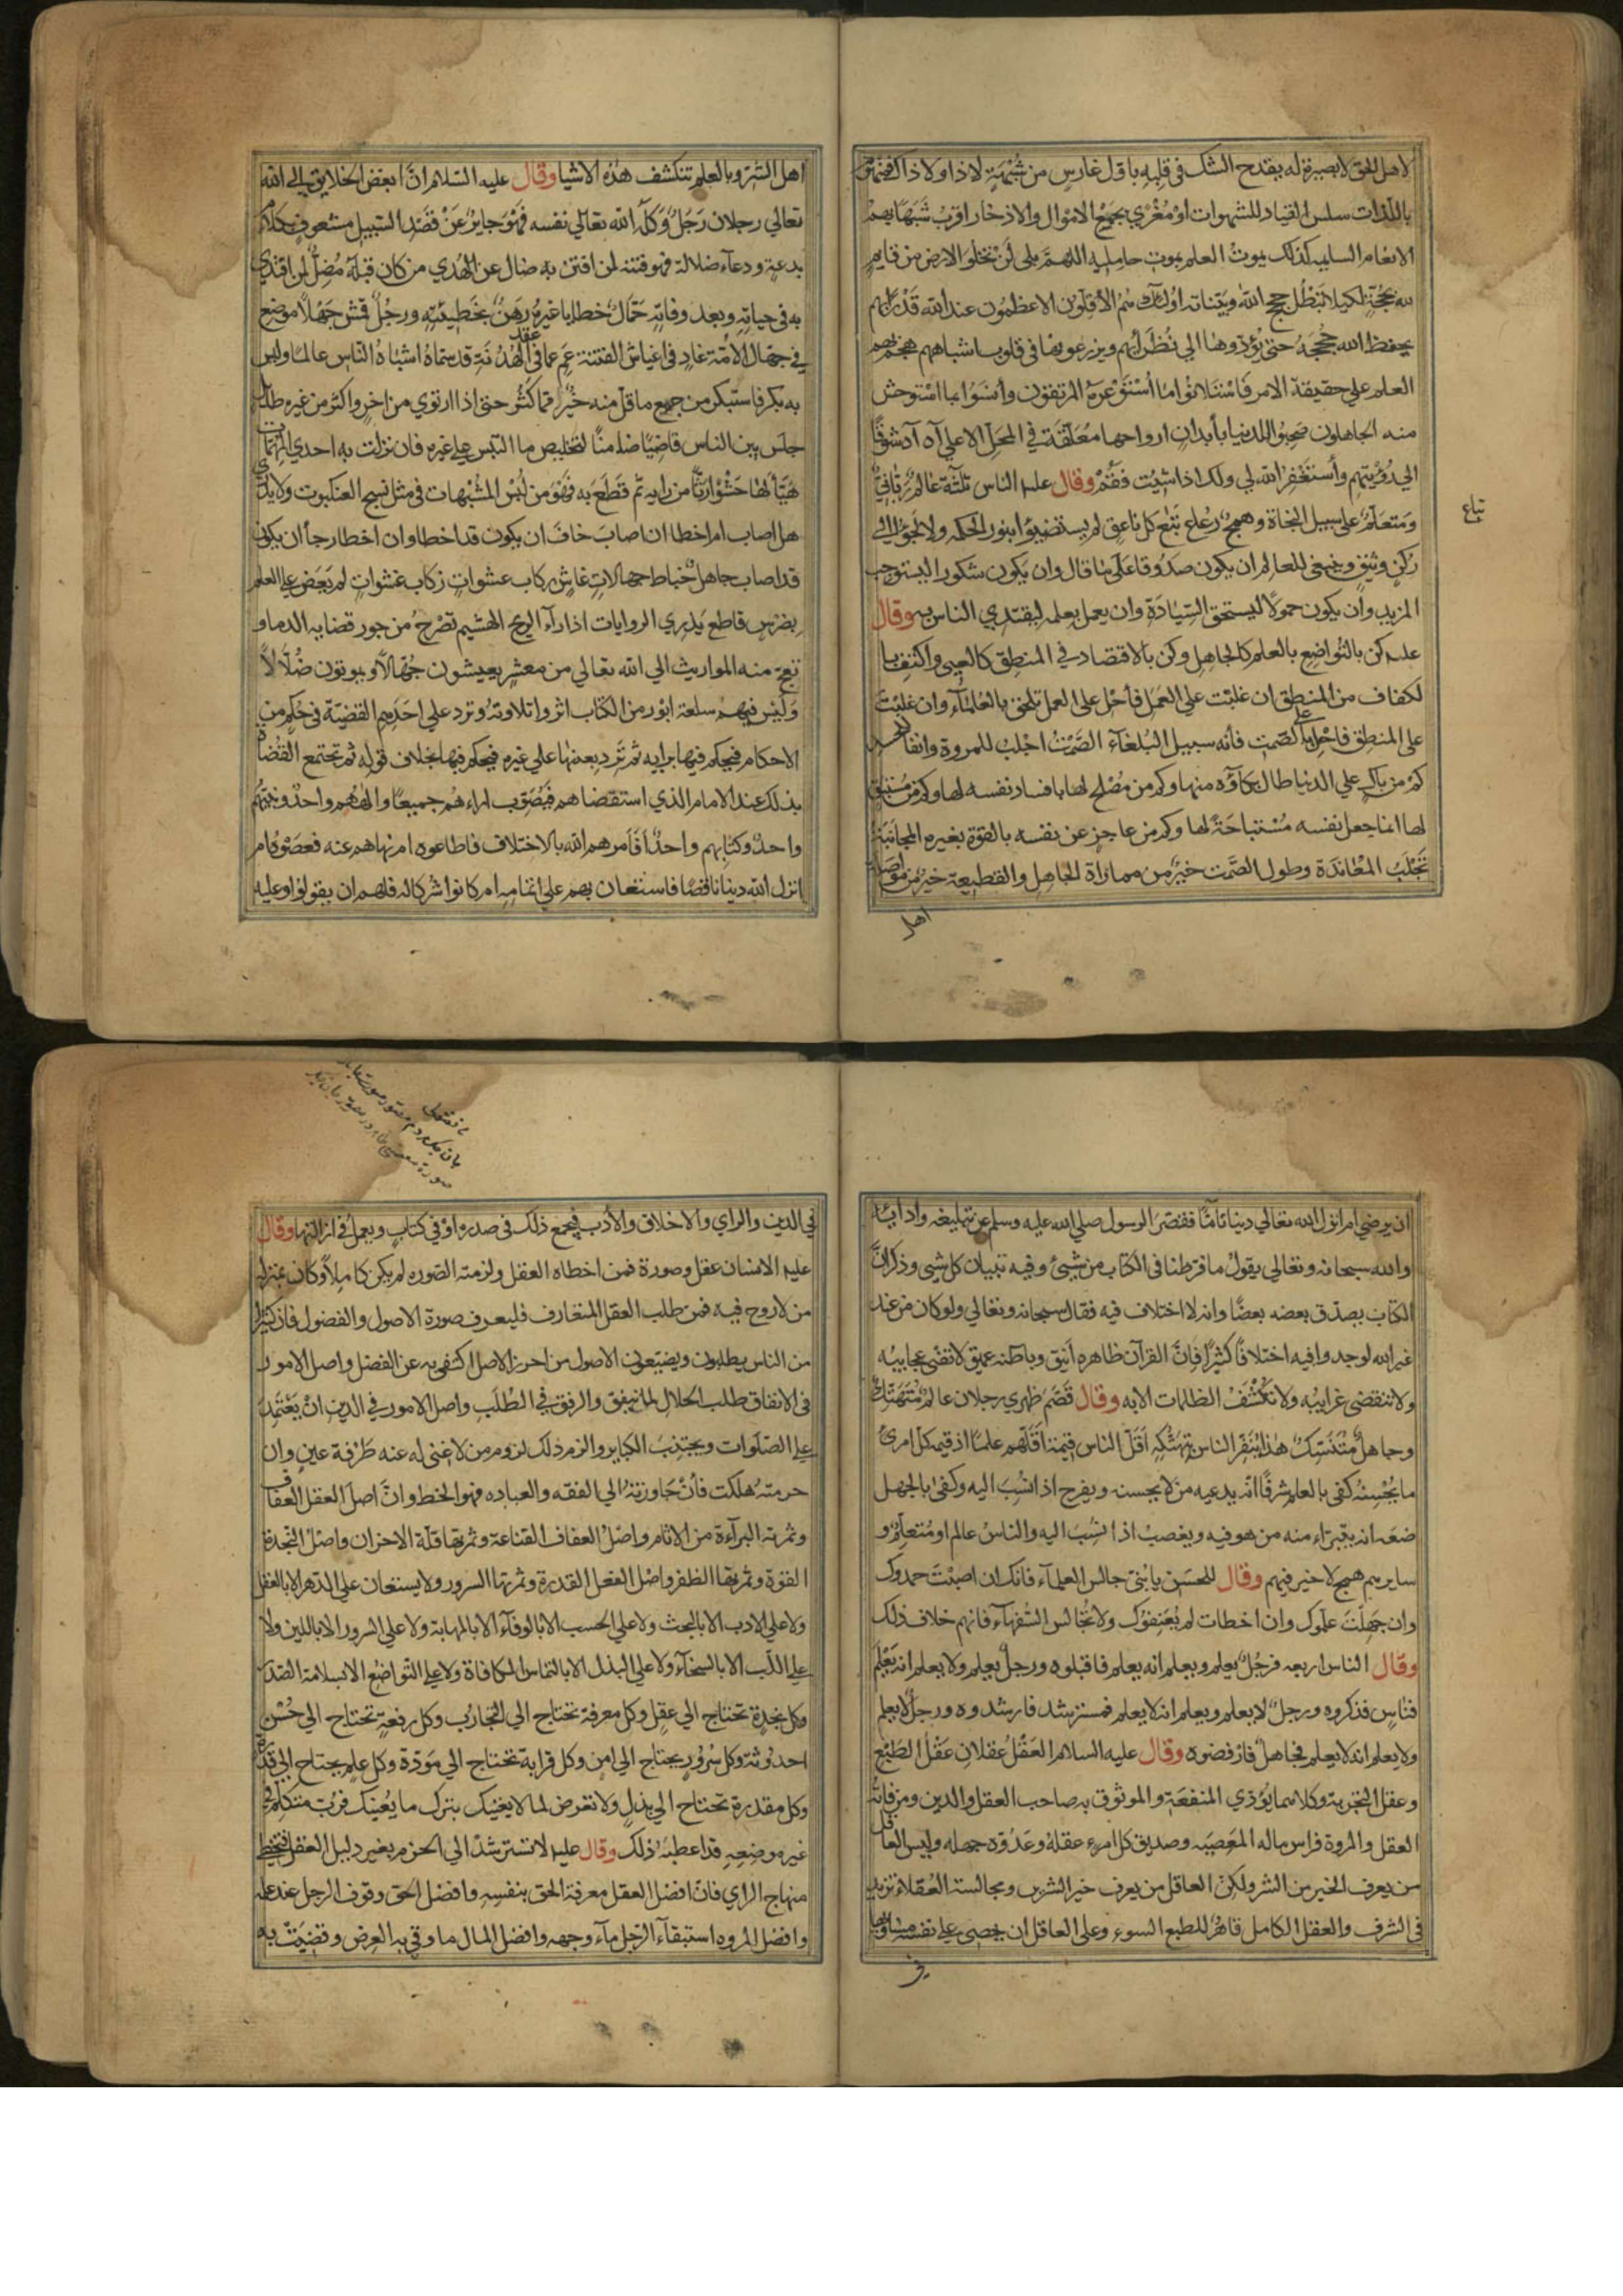 لاهل الحق لا بصيرة له يقدح الشك في قلبه باول غارس من شبهة لا ذا ولا ذاك فمنهوم
باللذات سلس القياد للشهوات او مغري بجمع الاموال والادخار اقرب شبها بهم
الانعام السايبه كذلك يموت العلم بموت حامليه اللهم بلي لن تخلو الارض من قايم
لله بحجة لكيلا تبطل حجج الله وبيناته اولئك هم الاقلون الاعظمون عند الله قدرا بهم
يحفظ الله حججه حتى يؤدوها الي نظرائهم ويزرعوها في قلوب اشباههم هجم بهم
العلم علي حقيقة الامر فاستلانوا ما استوعره المترفون وأنسوا بما استوحش
منه الجاهلون صحبوا الدنيا بأبدان ارواحها معلقة في المحل الاعلي آه آه شوقا
الي رؤيتهم وأستغفر الله لي ولك اذا شئت فقم وقال عليه الناس ثلثة عالم رباني
ومتعلم على سبيل النجاة وهمج رعاع تبع كل ناعق لم يستضيؤا بنور الحكمه ولا لجؤا الي
تباع
ركن وثيق وينبغي للعالم ان يكون صدوقا على ما قال وان يكون شكورا ليستوجب
المزيد وان يكون حمولا ليستحق السيادة وان يعمل بعلمه ليقتدي الناس به وقال
عليه كن بالتواضع بالعلم كالجاهل وكن بالاقتصاد في المنطق كالعيي واكتف با
لكفاف من المنطق ان غلبت علي العمل فأحل على العمل تلحق بالعلماء وان غلبت
على المنطق فاحل على الصمت فأنه سبيل البلغاء الصمت اجلب للمروة وانفا
كم من باك علي الدنيا طال بكاؤه منها وكم من مصلح لها بافساد نفسه لها وكم من مستبق
لها انما جعل نفسه مستباحة لها وكم من عاجز عن نفسه بالقوة بغيره المجانبة
تجلب المعاندة وطول الصمت خير من مماراة الجاهل والقطيعة خير من مواصلة
اهل
اهل الشر وبالعلم تنكشف هذه الاشيا وقال عليه السلام ان ابغض الخلايق الي الله
تعالي رجلان رجل وكله الله تعالي نفسه فهو جاير عن قصد السبيل مشعوف بكلام
بدعة ودعاء ضلالة فهو فتنة لمن افتتن به ضال عن الهدي من كان قبله مضل لمن اقتدي
به في حياته وبعد وفاته حمال خطايا غيره رهن بخطيئته ورجل قمش جهلا موضع
في جهال الامة غاد في اغباش الفتنة عم عما في عقد الهدنة قد سماه اشباه الناس عالما وليس
به بكر فاستكبر من جمع ما قل منه خير مما كثر حتى اذا ارتوي من اجن واكثر من غير طائل
جلس بين الناس قاضيا ضامنا لتخليص ما التبس علي غيره فان نزلت به احدي المبهمات
هيأ لها حشوا رثا من رايه ثم قطع به فهو من لبس الشبهات في مثل نسج العنكبوت ولا يدري
هل اصاب ام اخطا ان اصاب خاف ان يكون قد اخطا وان اخطا رجا أن يكون
قد اصاب جاهل خباط جهالات غاش ركاب عشوات لم يعض علي العلم
بضرس قاطع يذري الروايات اذراء الريح الهشيم تصرخ من جور قضايه الدما و
تعج منه المواريث الي الله تعالي من معشر يعيشون جهالا ويموتون ضلالا
وليس فيهم سلعة ابور من الكتاب اثروا تلاوته وترد علي احدهم القضية في حكم من
الاحكام فيحكم فيها برايه ثم ترد بعينها علي غيره فيحكم فيها بخلاف قوله ثم تجتمع القضاة
بذلك عند الامام الذي استقضاهم فيصوب اراءهم جميعا والههم واحد ونبيهم
واحد وكتابهم واحد أفأمرهم الله بالاختلاف فاطاعوه ام نهاهم عنه فعصوه ام
انزل الله دينا ناقصا فاستعان بهم علي اتمامه ام كانوا شركاله فلهم ان يقولوا وعليه
ان يرضي ام انزل الله تعالي دينا تاما فقصر الرسول صلي الله عليه وسلم عن تبليغه وادايه
والله سبحانه وتعالي يقول ما فرطنا في الكتاب من شيئ وفيه تبيان كل شيئ وذكر ان
الكتاب يصدق بعضه بعضا وانه لا اختلاف فيه فقال سبحانه وتعالي ولو كان من عند
غير الله لوجدوا فيه اختلافا كثيرا فان القرآن ظاهره أنيق وباطنه عميق لا تفني عجايبه
ولا تنقضي غرايبه ولا تكشف الظلمات الا به وقال قصم ظهري رجلان عالم متهتك
وجاهل متنسك هذا ينفر الناس بتهتكه اقل الناس قيمة اقلهم علما اذ قيمة كل امرئ
ما يحسنه كفى بالعلم شرفا انه يدعيه من لا يحسنه ويفرح اذا نسب اليه وكفى بالجهل
ضعه انه يتبراء منه من هو فيه ويغضب اذا نسب اليه والناس عالم او متعلم و
سايرهم همج لا خير فيهم وقال للحسن يا بني جالس العلماء فانك ان اصبت حمدوك
وان جهلت علموك وان اخطات لم يعنفوك ولا تجالس السفهاء فانهم خلاف ذلك
وقال الناس اربعه فرجل يعلم ويعلم انه يعلم فاقبلوه ورجل يعلم ولا يعلم انه يعلم
فناس فذكروه ورجل لا يعلم ويعلم انه لا يعلم فمسترشد فارشدوه ورجل لا يعلم
ولا يعلم انه لا يعلم فجاهل فارفضوه وقال عليه السلام العقل عقلان عقل الطبع
وعقل التجربة وكلاهما يؤدي المنفعة والموثوق به صاحب العقل والدين ومن فاته
العقل والمروة فراس ماله المعصيه وصديق كل امرء عقله وعدوه جهله وليس العاقل
من يعرف الخير من الشر ولكن العاقل من يعرف خير الشرين ومجالسة العقلاء تزيد
في الشرف والعقل الكامل قاهر للطبع السوء وعلى العاقل ان يحصي علي نفسه مساويها
في
في الدين والراي والاخلاق والأدب فيجمع ذلك في صدره او في كتاب ويعمل في ازالتها وقال
عليه الانسان عقل وصورة فمن اخطاه العقل ولزمته الصوره لم يكن كاملا وكان بمنزلة
من لا روح فيه فمن طلب العقل المتعارف فليعرف صورة الاصول والفضول فان كثيرا
من الناس يطلبون ويضيعون الاصول من احرز الاصل اكتفي به عن الفضل واصل الامور
في الانفاق طلب الحلال لما ينفق والرفق في الطلب واصل الامور في الدين ان يعتمد
علي الصلوات ويجتنب الكباير والزم ذلك لزوم من لا غني له عنه طرفة عين وان
حرمته هلكت فأن جاوزته الي الفقه والعباده فهو الحظ وان اصل العقل العفاف
وثمرته البراءة من الاثام واصل العفاف القناعة وثمرتها قلة الاحزان واصل النجدة
القوة وثمرتها الظفر واصل الفعل القدرة وثمرتها السرور ولا يستعان علي الدهر الا بالعقل
ولا علي الادب الا بالبحث ولا علي الحسب الا بالوفاء الا بالمهابة ولا علي السرور الا باللين ولا
علي اللب الا بالسخاء ولا علي البذل الا بالتماس المكافاة ولا علي التواضع الا بسلامة الصدر
وكل نجدة تحتاج الي عقل وكل معرفة تحتاج الي التجارب وكل رفعة تحتاج الي حسن
احدوثة وكل سرور يحتاج الي امن وكل قرابة تحتاج الي مودة وكل علم يحتاج الي قدرة
وكل مقدرة تحتاج الي بذل ولا تعرض لما لا يعنيك بترك ما يعنيك فرب متكلم في
غير موضعه قد اعطبه ذلك وقال عليه لا تسترشد الي الحزم بغير دليل العقل فتخطي
منهاج الراي فان افضل العقل معرفة الحق بنفسه وافضل الحق وقوف الرجل عند علمه
وافضل المروه استبقاء الرجل ماء وجهه وافضل المال ما وقي به العرض وقضيت به